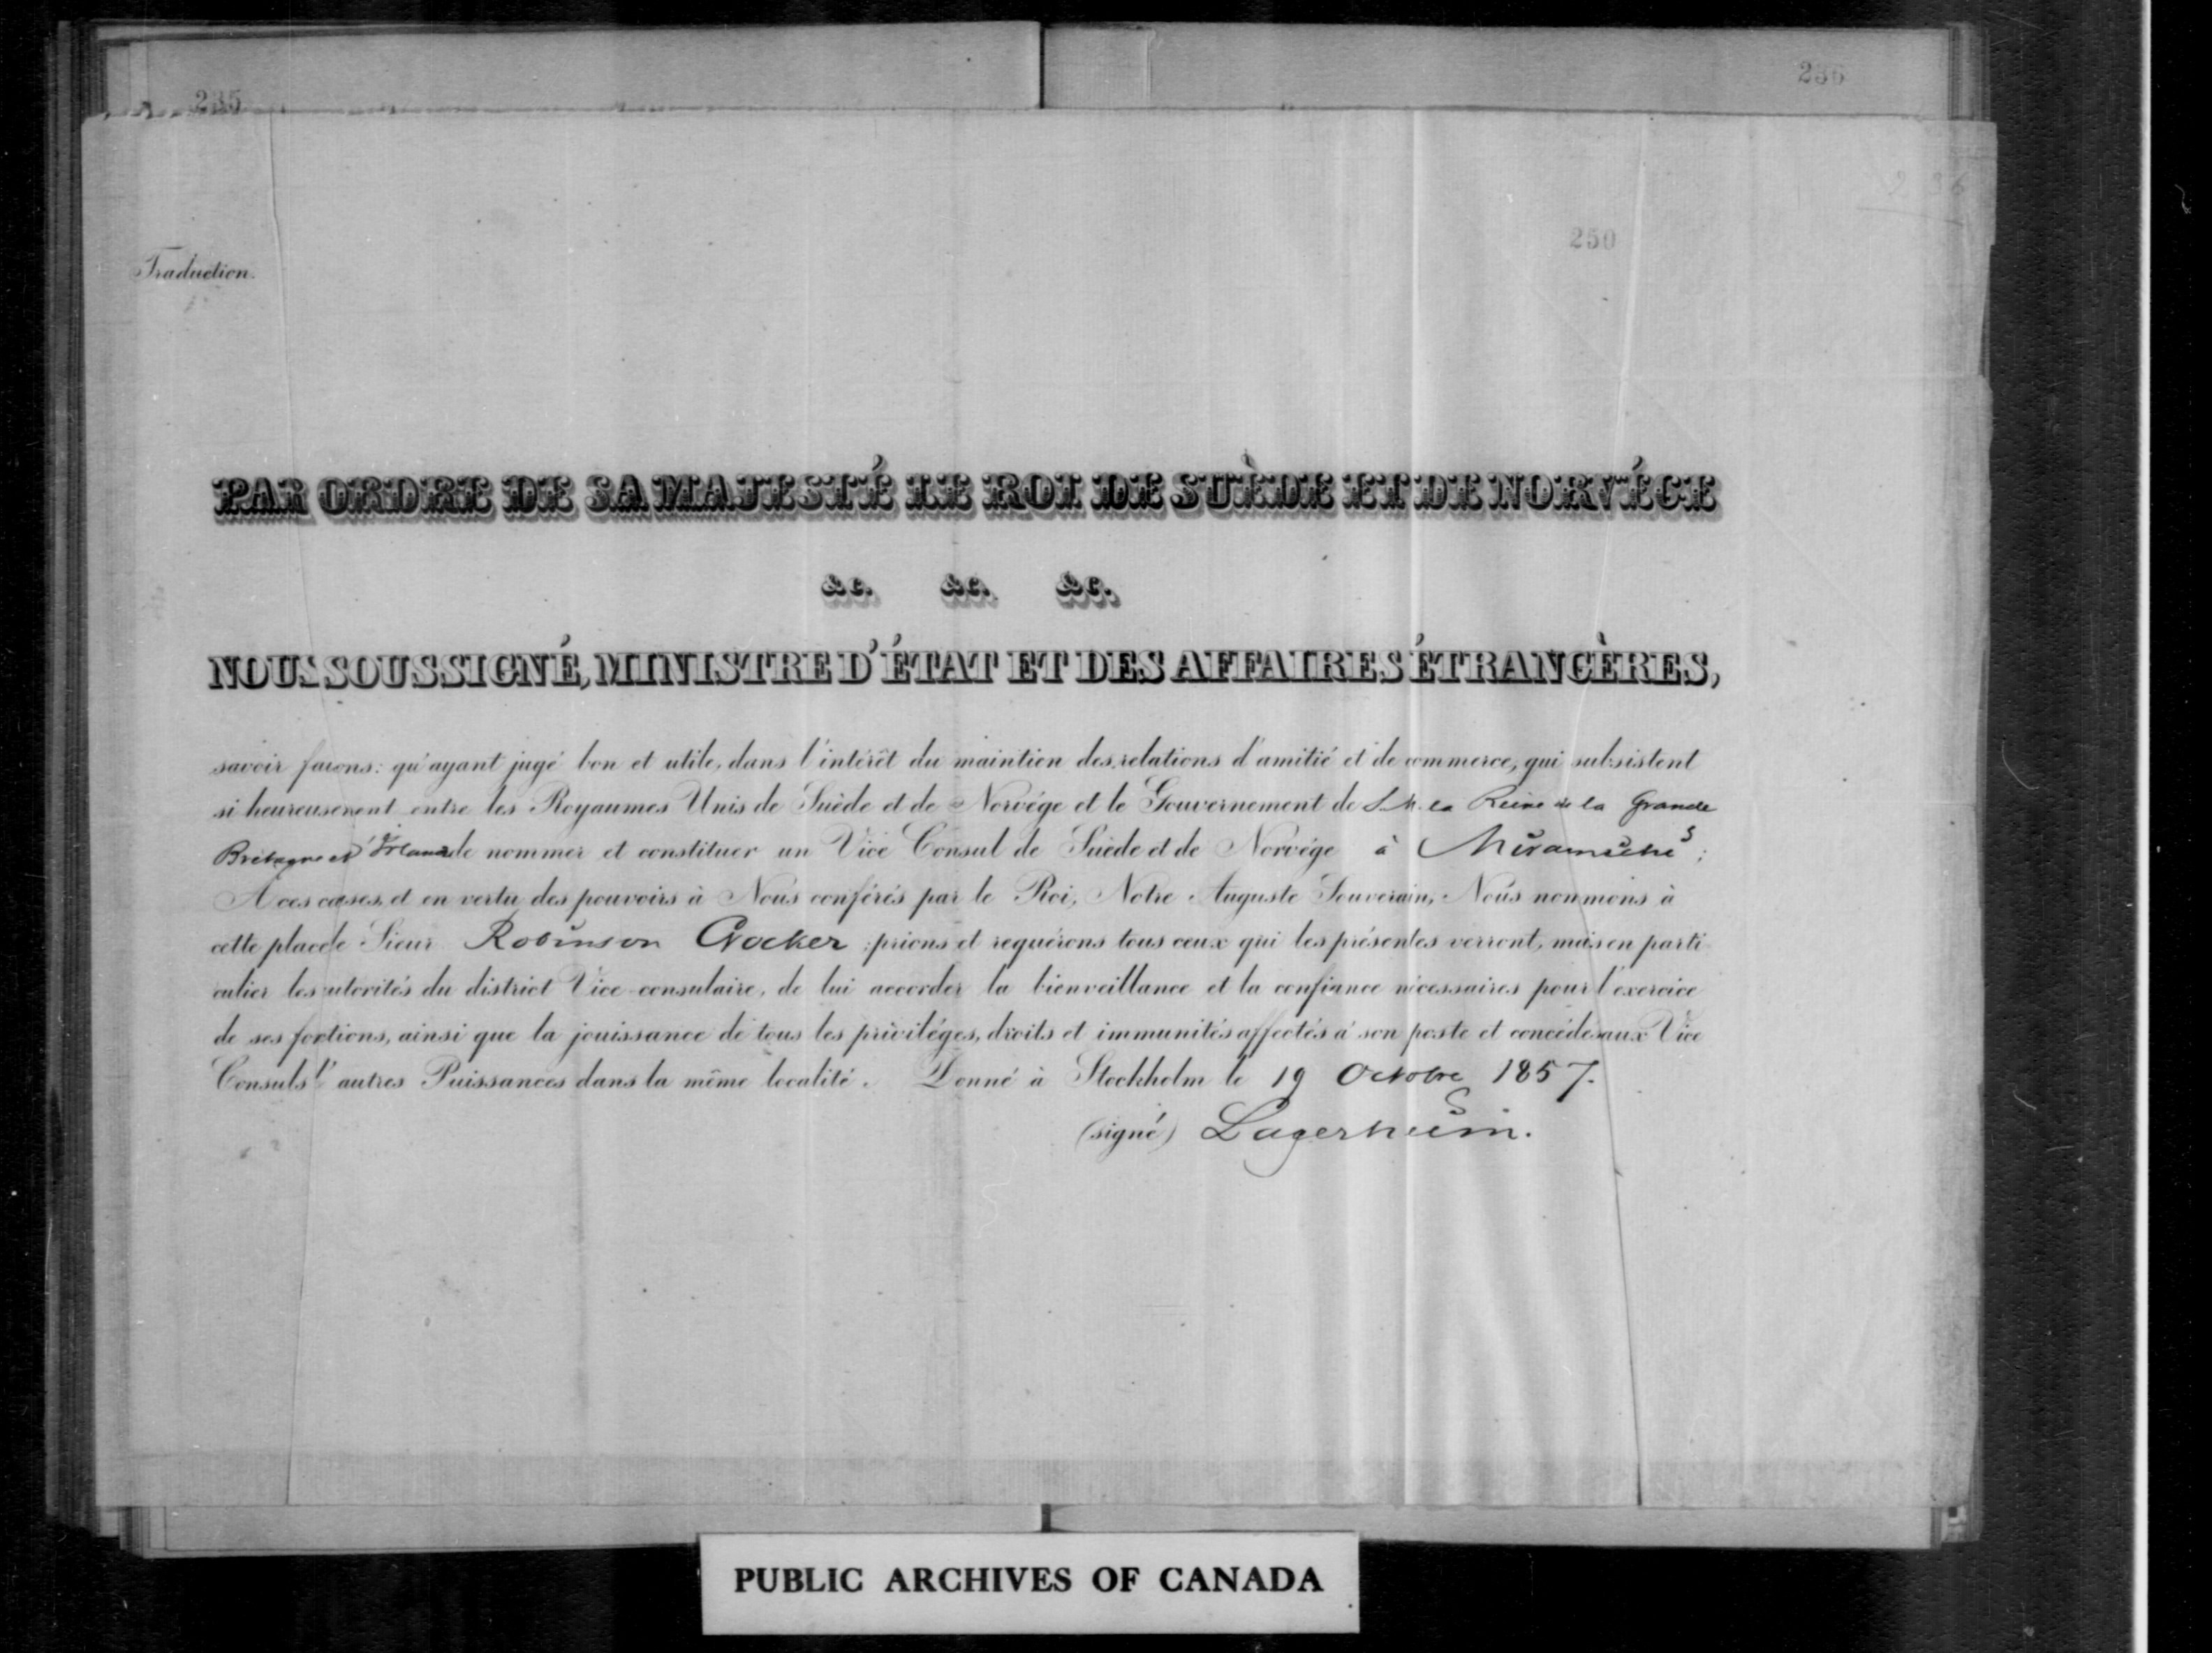 235
236
236
250
Traduction.
PAR ORDRE DE SA MAJESTÉ LE ROI DE SUÈDE ET DE NORVÉGE
&c. &c. &c.
NOUS SOUSSIGNÉ, MINISTRE D'ÉTAT ET DES AFFAIRES ÉTRANGÈRES,
savoir faisons: qu'ayant jugé bon et utile, dans l'intérêt du maintien des relations d'amitié et de commerce, qui subsistent
si heureusement entre les Royaumes Unis de Suède et de Norvége et le Gouvernement de S. M. la Reine de la Grande
Bretagne et d'Irlande de nommer et constituer un Vice Consul de Suède et de Norvége à Miramichi;
A ces causes, et en vertu des pouvoirs à Nous conférés par le Roi, Notre Auguste Souverain, Nous nommons à
cette place le Sieur Robinson Crocker; prions et requérons tous ceux qui les présentes verront, mais en parti-
culier les autorités du district Vice-consulaire, de lui accorder la bienveillance et la confiance nécessaires pour l'exercice
de ses fonctions, ainsi que la jouissance de tous les priviléges, droits et immunités affectés à son poste et concédés aux Vice
Consuls d'autres Puissances dans la même localité. Donné à Stockholm le 19 Octobre 1857.
(signé) Lagerheim.
PUBLIC ARCHIVES OF CANADA